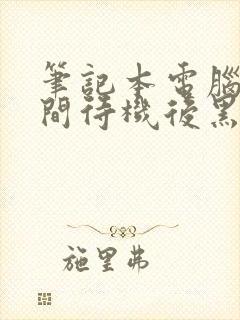 筆記本電腦
間待機後黑
施里弗